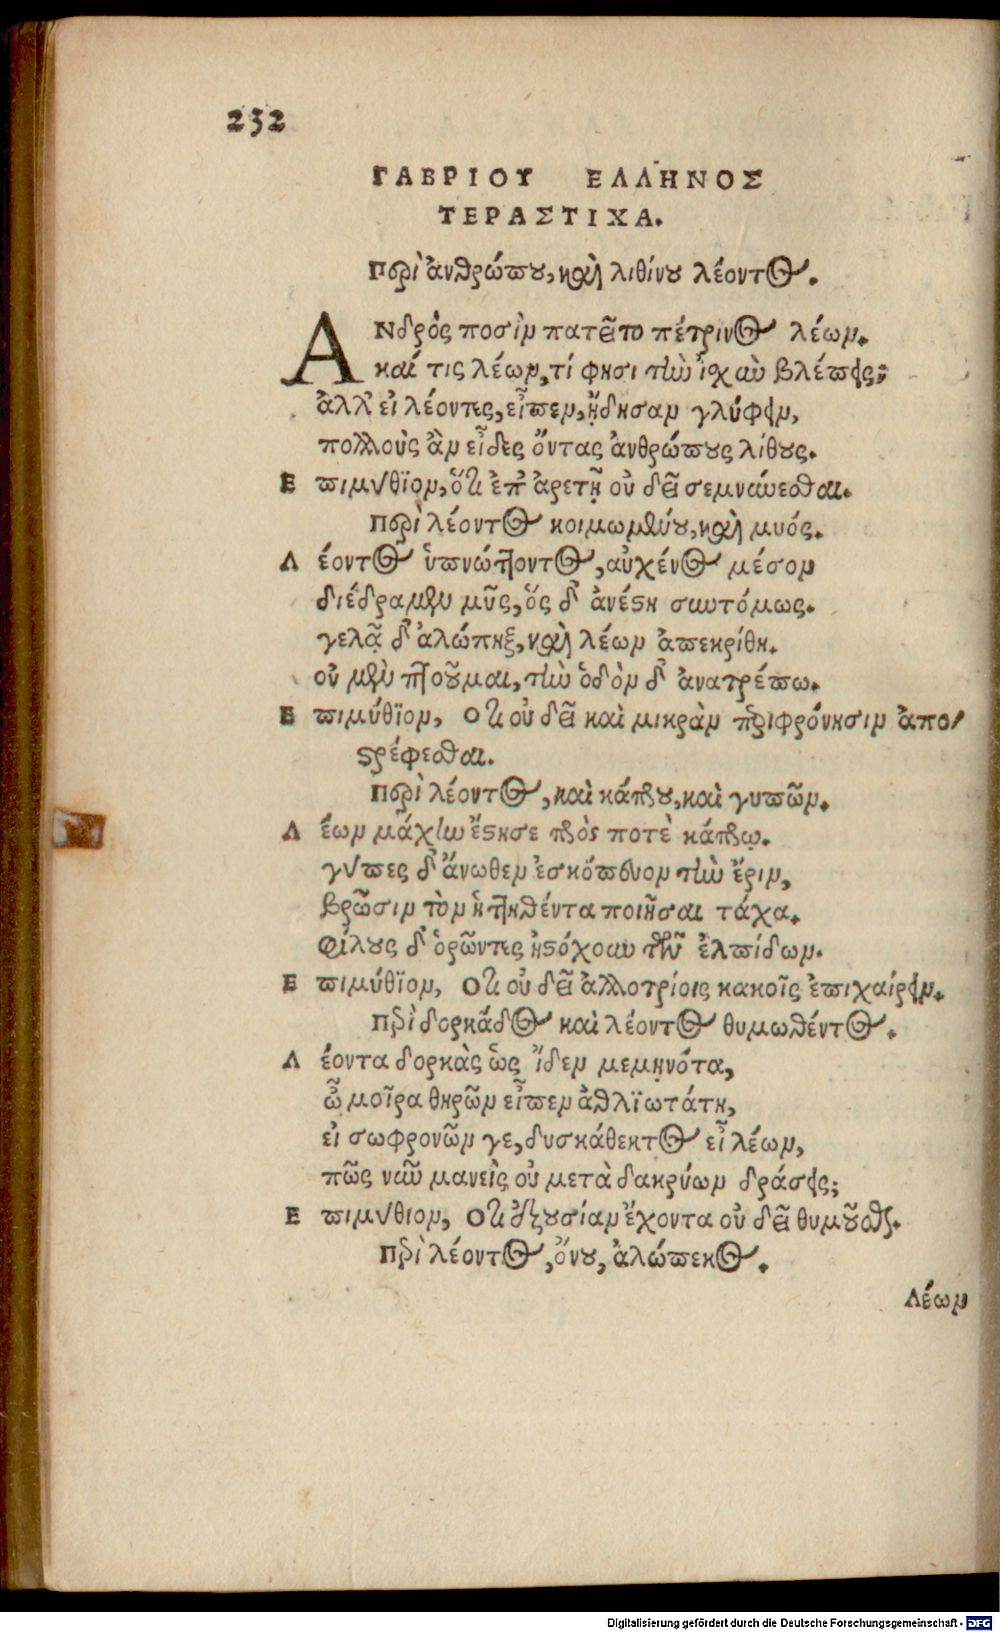 232
ΓΑΒΡΙΟΥ ΕΛΛΗΝΟΣ
ΤΕΡΑΣΤΙΧΑ.
Περὶ ἀνθρώπου, καὶ λιθίνου λέοντος.
ΑΝδρὸς ποσὶν πατεῖτο πέτρινος λέων.
καί τις λέων, τί φησι τὴν ἰσχὺν βλέπεις;
ἀλλ' εἰ λέοντες, εἶπεν, ᾔδησαν γλύφειν,
πολλοὺς ἂν εἶδες ὄντας ἀνθρώπους λίθους.
Επιμύθϊον, ὅτι ἐπ' ἀρετῇ οὐ δεῖ σεμνύνεσθαι.
Περὶ λέοντος κοιμωμένου, καὶ μυός.
Λέοντος ὑπνώττοντος, αὐχένος μέσον
διέδραμεν μῦς, ὅς δ' ἀνέστη συντόμως.
γελᾷ δ' ἀλώπηξ, καὶ λέων ἀπεκρίθη.
οὐ μὲν πτοοῦμαι, τὴν ὁδὸν δ' ἀνατρέπω.
Επιμύθϊον, Οτι οὐ δεῖ καὶ μικρὰν περιφρόνησιν ἀπο/
στρέφεσθαι.
Περὶ λέοντος, καὶ κάπρου, καὶ γυπῶν.
Λέων μάχην ἔστησε πρὸς ποτὲ κάπρῳ.
γύπες δ' ἄνωθεν ἐσκόπευον τὴν ἔριν,
βρῶσιν τὸν ἡττηθέντα ποιῆσαι τάχα.
Φίλους δ' ὁρῶντες ἠστόχουν τῶν ἐλπίδων.
Επιμύθϊον, Οτι οὐ δεῖ ἀλλοτρίοις κακοῖς ἐπιχαίρειν.
Περὶ δορκάδος καὶ λέοντος θυμωθέντος.
Λέοντα δορκὰς ὡς ἴδεν μεμηνότα,
ὦ μοῖρα θηρῶν εἶπεν ἀθλϊωτάτη,
εἰ σωφρονῶν γε, δυσκάθεκτος εἶ λέων,
πῶς νῦν μανεὶς οὐ μετὰ δακρύων δράσεις;
Επιμύθιον, Οτι ἐξουσίαν ἔχοντα οὐ δεῖ θυμοῦσθαι.
Περὶ λέοντος, ὄνου, ἀλώπεκος.
Λέων
Digitalisierung gefördert durch die Deutsche Forschungsgemeinschaft - DFG